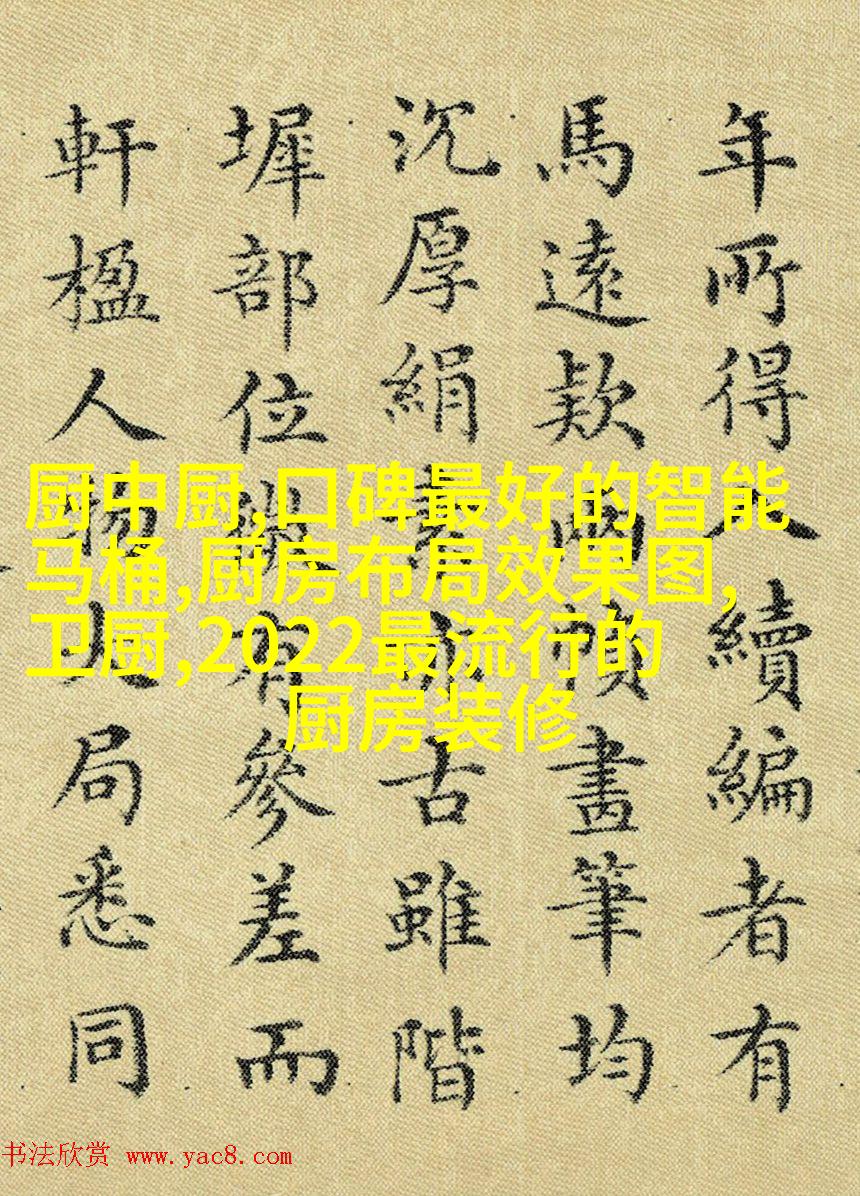 年所得入續編者有
馬遠欵兩幀畫筆均
沉厚絹素亦古雖階
墀部位微有參差而
軒楹人物大局悉同
厨中厨,口碑最好的智能
马桶,厨房布局效果图,
卫厨,2022最流行的
厨房装修
书法欣赏 www.yac8.com